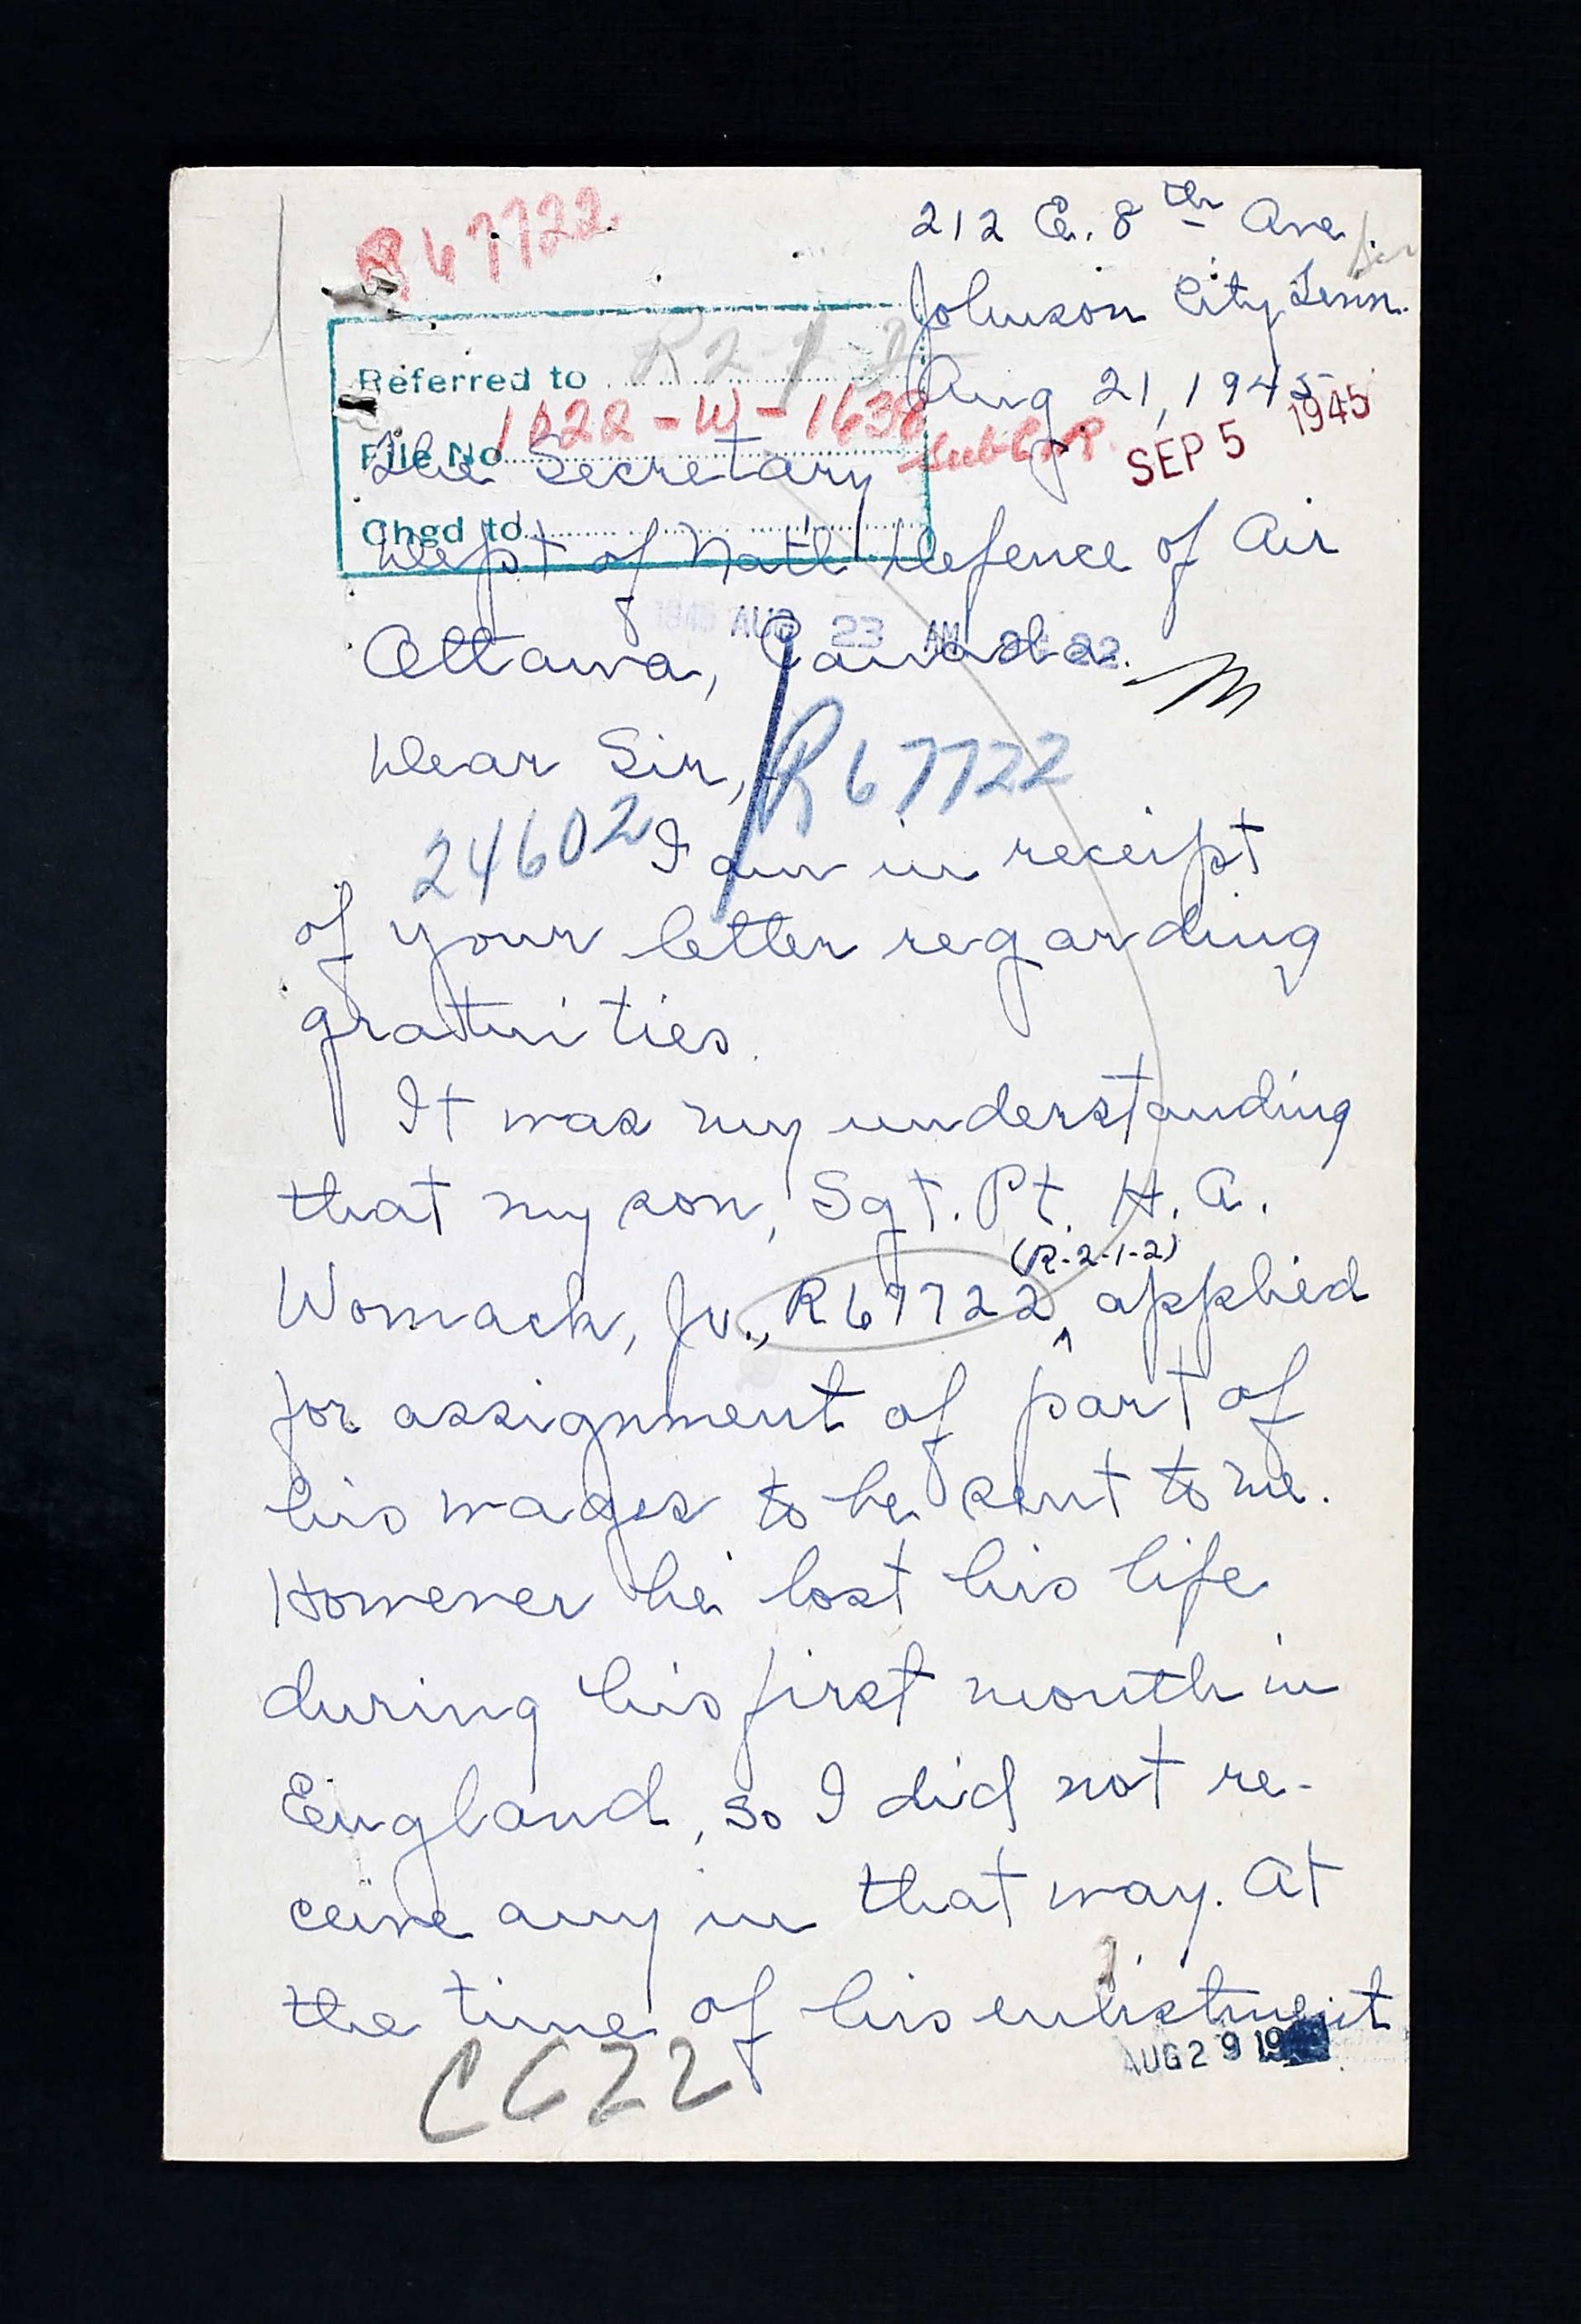 R67722
212 E. 8th Ave.
Johnson City, Tenn.
Aug 21, 1945
Referred to R2-1-2
File No. 1022-W-1638
SEP 5 1945
The Secretary
Chgd to
Dept of Natl Defence of Air
AUG 23 AM
Ottawa, Canada.
Dear Sir,
R67722
24602
I am in receipt
of your letter regarding
gratuities.
It was my understanding
that my son, Sgt. Pt. H. A.
(R-2-1-2)
Womack, Jr., R67722 ^ applied
for assignment of part of
his wages to be sent to me.
However he lost his life
during his first month in
England, so I did not re-
ceive any in that way. At
the time of his enlistment
AUG 29 19
CG22